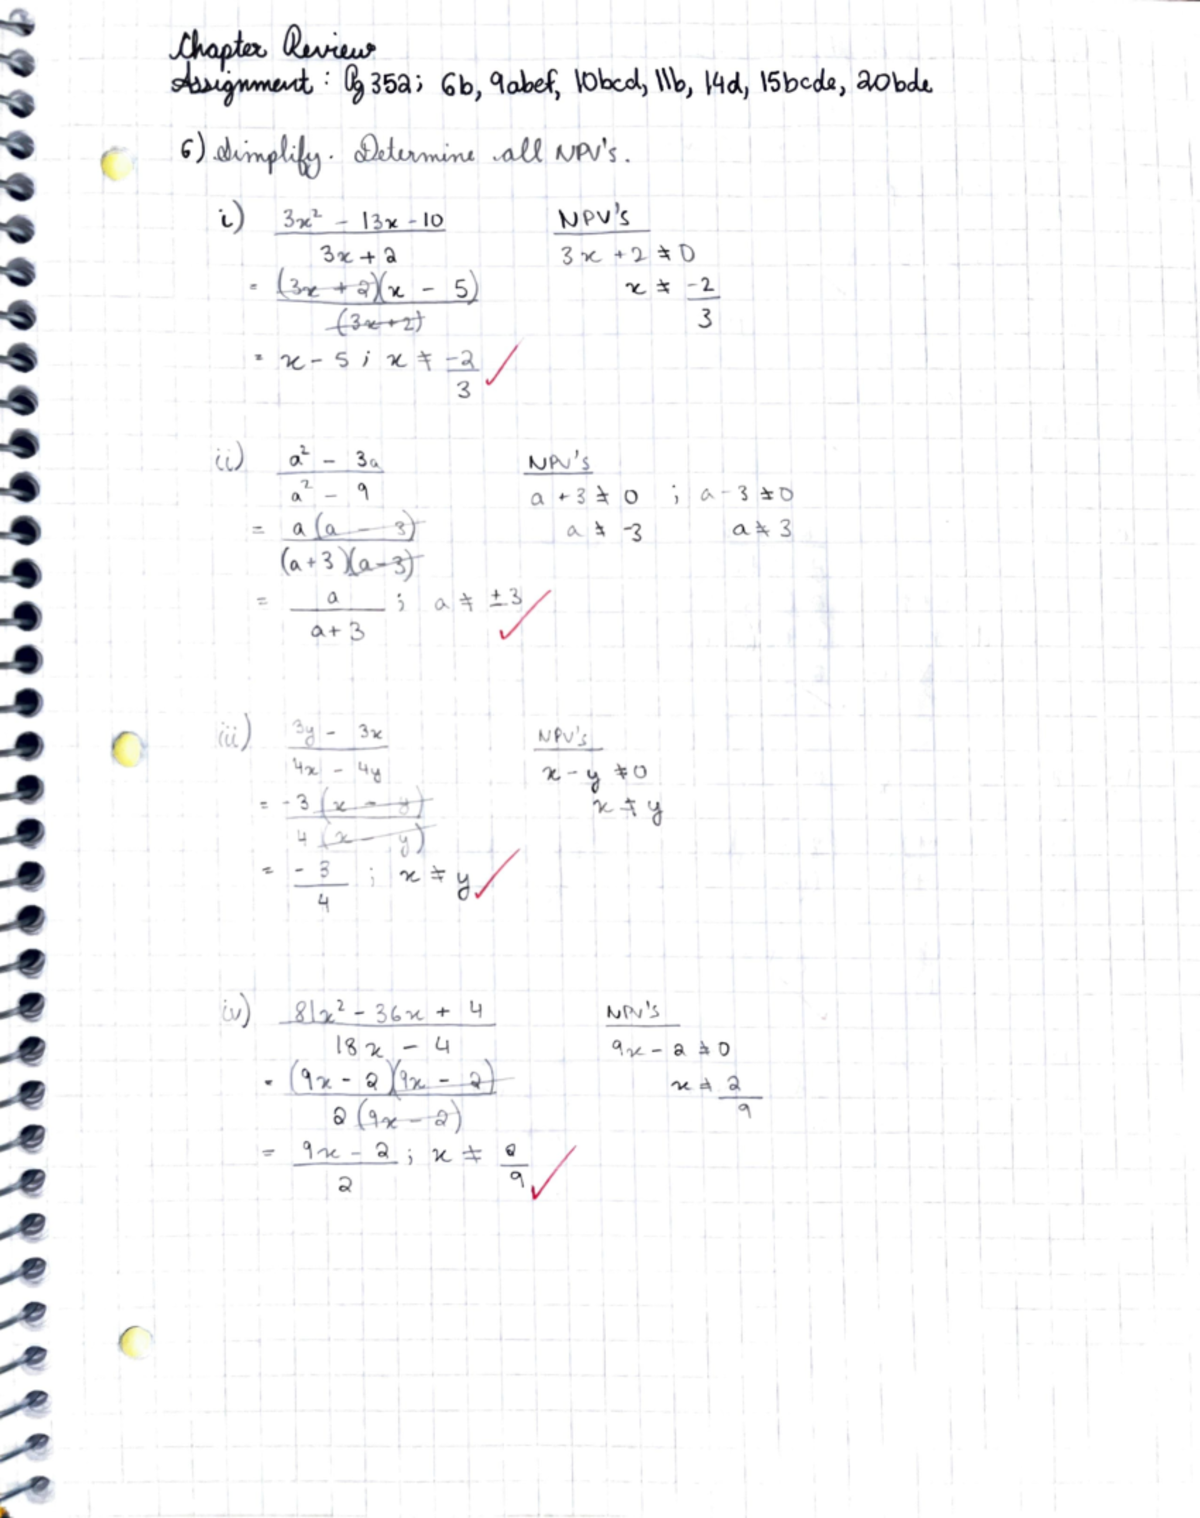 Chapter Review
Assignment : Pg 352; 6b, 9abef, 10bcd, 11b, 14d, 15bcde, 20bde
6) Simplify. Determine all NPV's.
i) 3x² - 13x - 10
3x + 2
= (3x + 2)(x - 5)
(3x + 2)
= x - 5 ; x ≠ -2
3
NPV's
3x + 2 ≠ 0
x ≠ -2
3
ii) a² - 3a
a² - 9
= a (a - 3)
(a + 3)(a - 3)
= a ; a ≠ ±3
a + 3
NPV's
a + 3 ≠ 0 ; a - 3 ≠ 0
a ≠ -3 a ≠ 3
iii) 3y - 3x
4x - 4y
= -3 (x - y)
4 (x - y)
= - 3 ; x ≠ y
4
NPV's
x - y ≠ 0
x ≠ y
iv) 81x² - 36x + 4
18x - 4
= (9x - 2)(9x - 2)
2 (9x - 2)
= 9x - 2 ; x ≠ 2
2 9
NPV's
9x - 2 ≠ 0
x ≠ 2
9